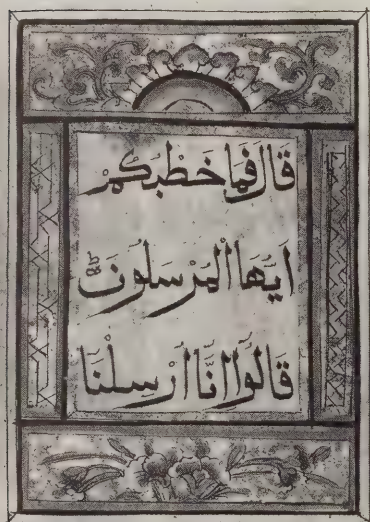 قَالَ فَمَا خَطْبُكُمْ
اَيُّهَا الْمُرْسَلُونَ ؕ
قَالُوٓا اِنَّآ اُرْسِلْنَآ